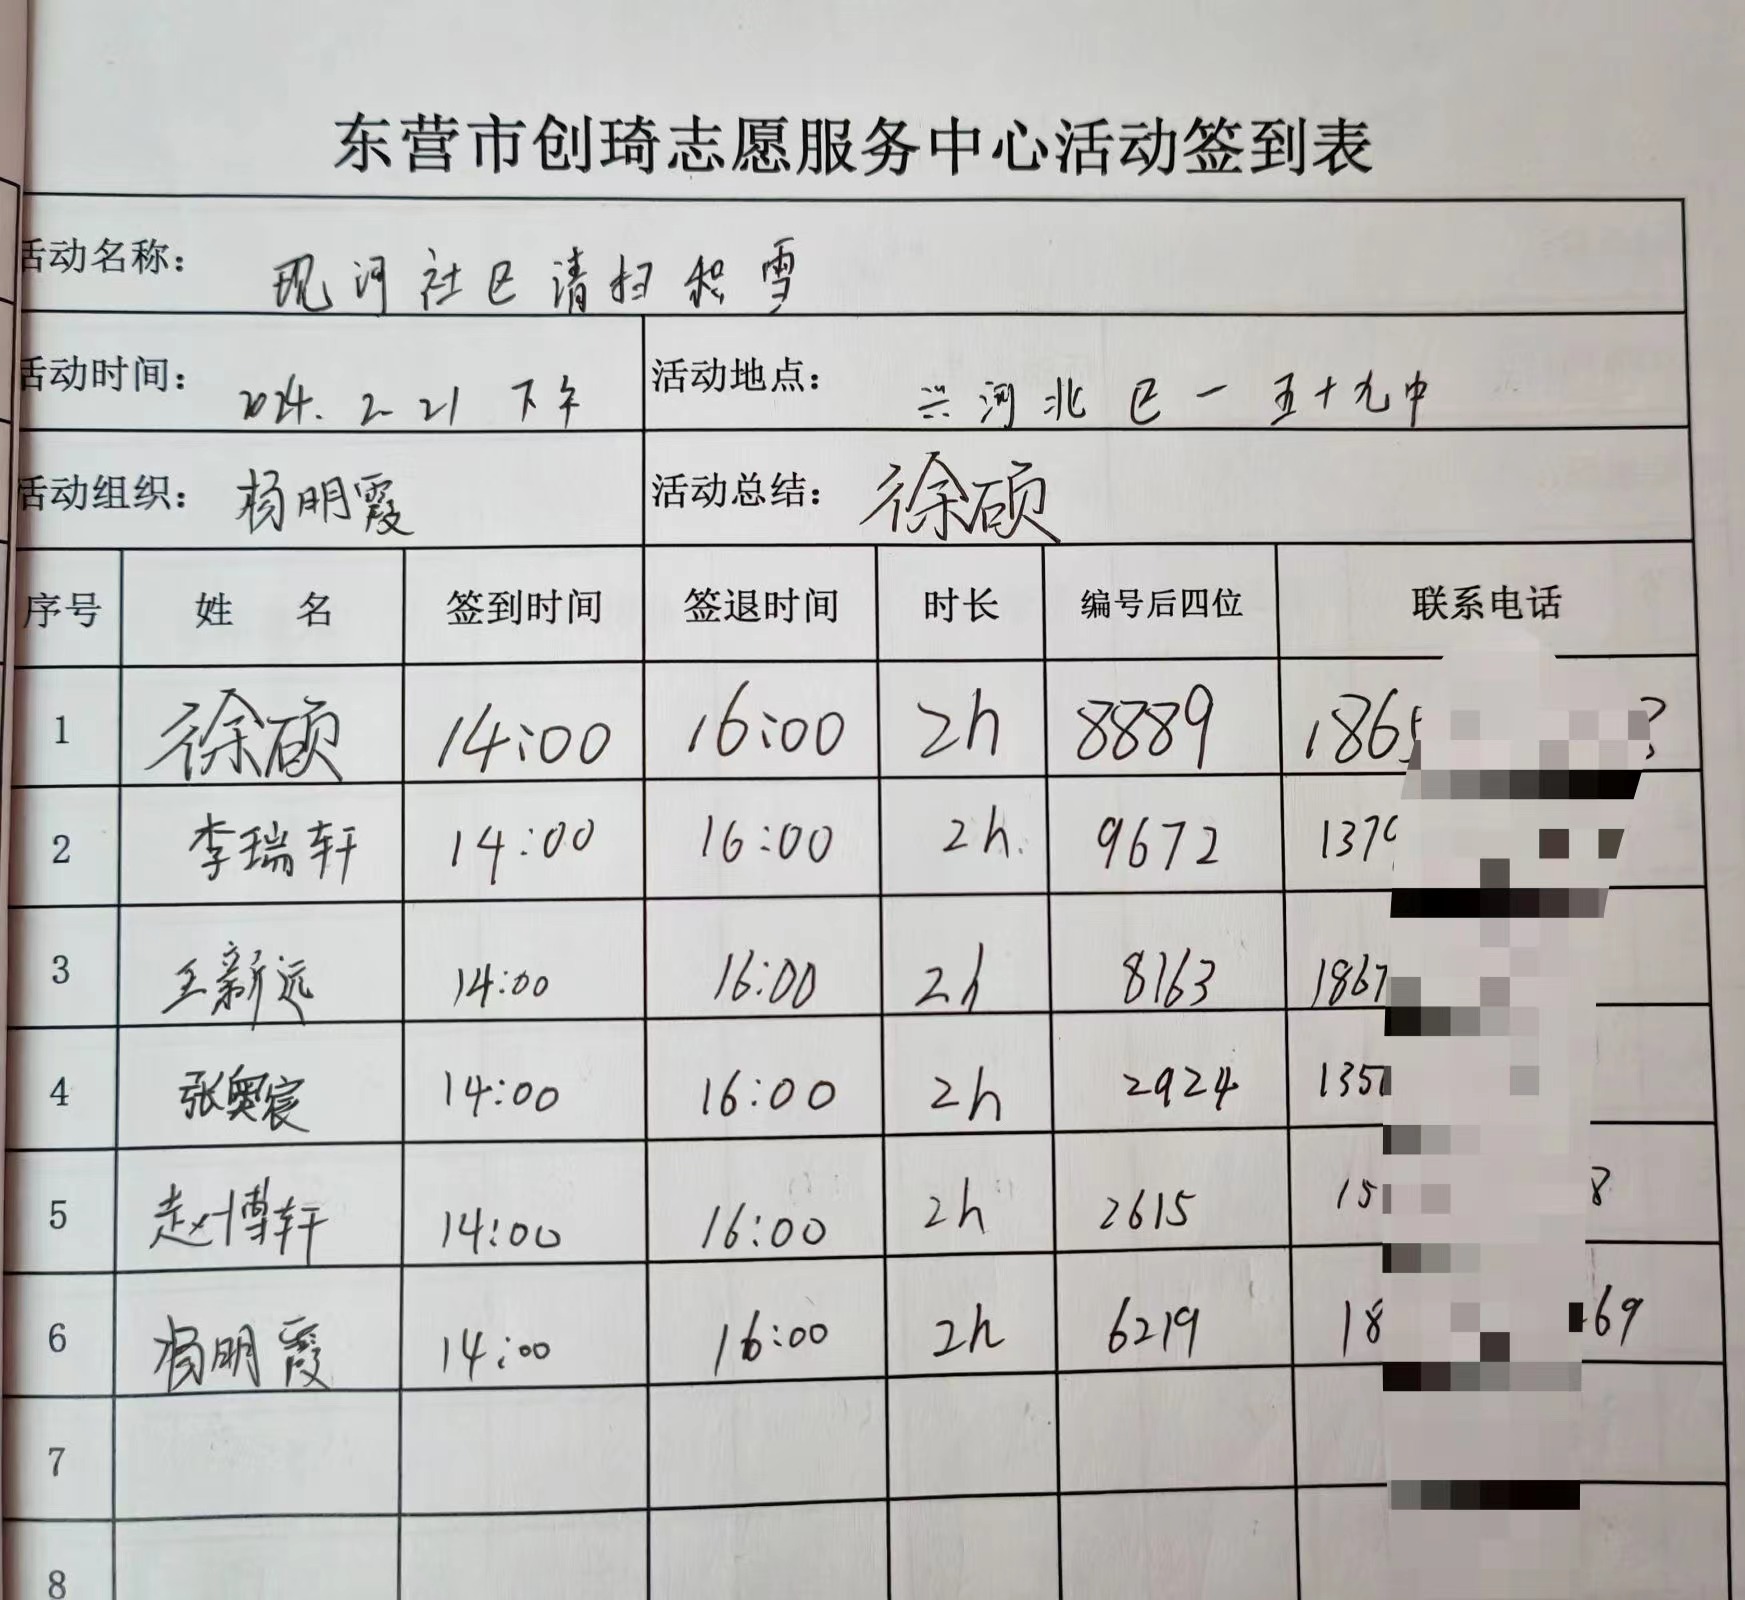 东营市创琦志愿服务中心活动签到表
活动名称: 现河社区清扫积雪
活动时间: 2024.2-21 下午 活动地点: 兴河北区一五十九中
活动组织: 杨明霞 活动总结: 徐硕
序号 姓 名 签到时间 签退时间 时长 编号后四位 联系电话
1 徐硕 14:00 16:00 2h 8889 1865
2 李瑞轩 14:00 16:00 2h. 9672 1379
3 王新远 14:00 16:00 2h 8163 1867
4 张奥宸 14:00 16:00 2h 2924 135
5 赵博轩 14:00 16:00 2h 2615 15 8
6 杨明霞 14:00 16:00 2h 6219 18 69
7
8